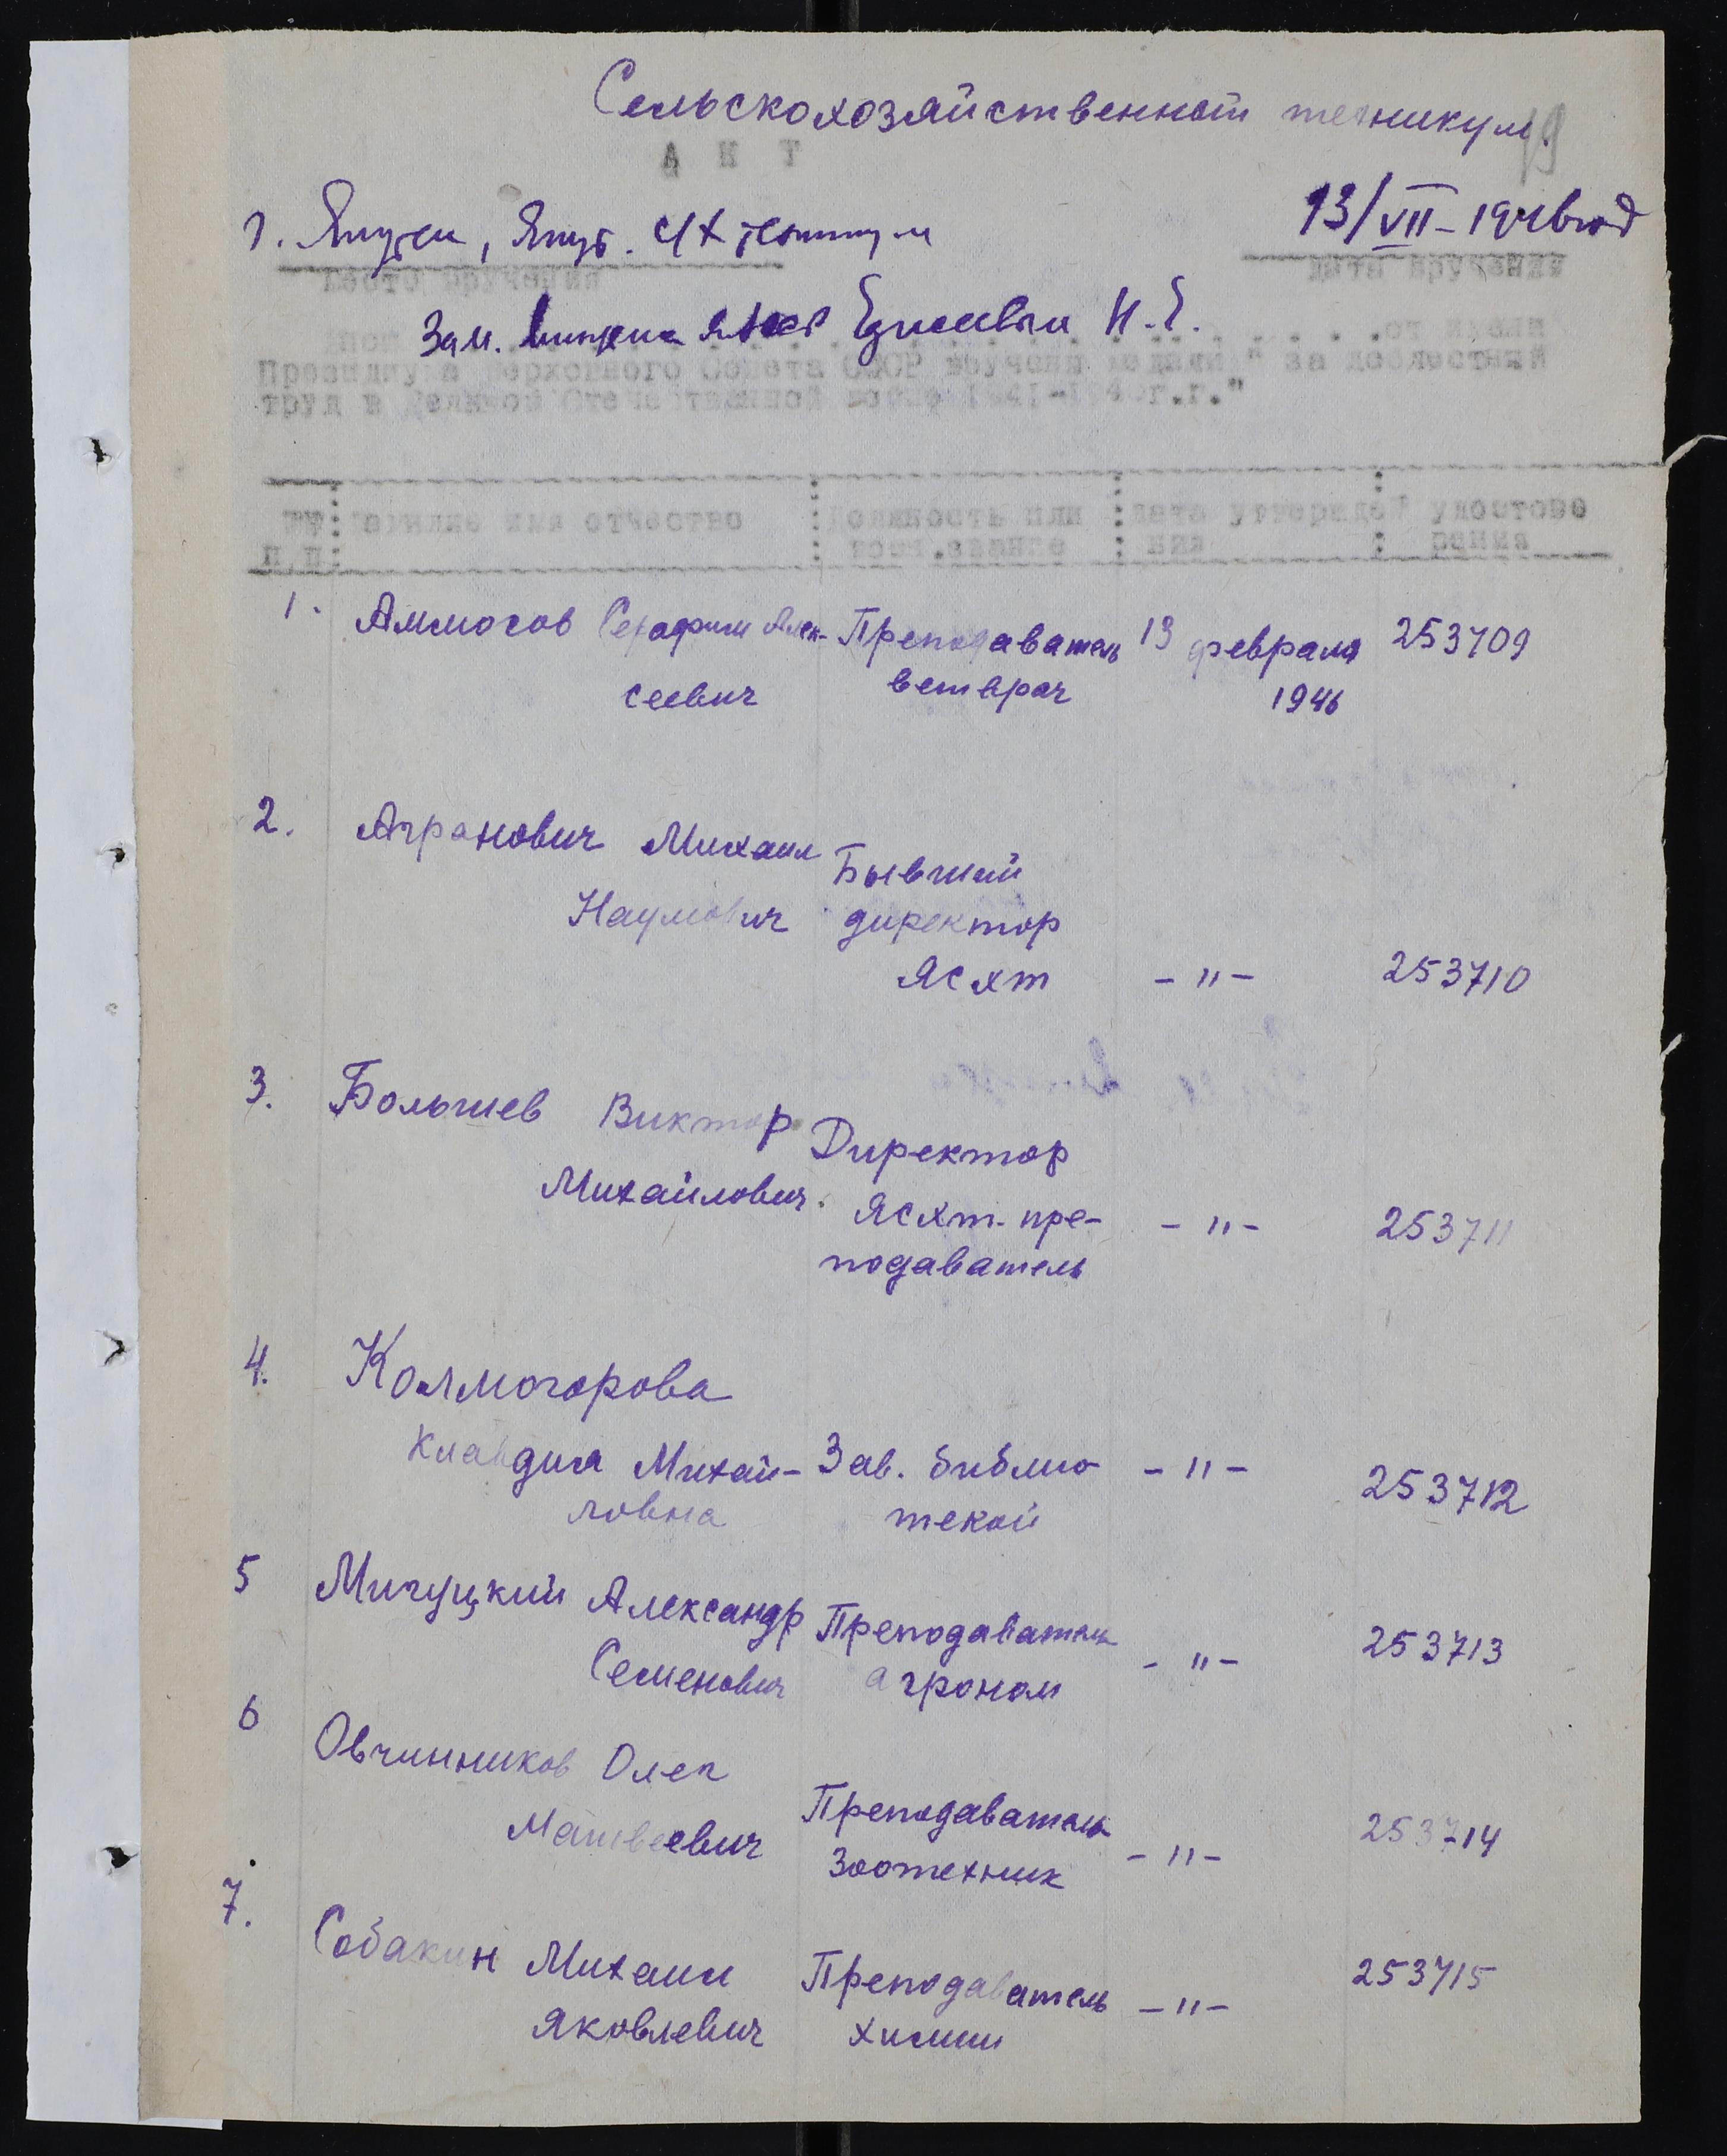 Сельскохозяйственный техникум
19
А К Т
г. Якутск, Якут. с/х техникум
13/VII-1946 год
место вручения
дата вручения
Зам. министра ЯАССР Н. Е.
от имени
Президиума Верховного Совета СССР вручены медали " за доблестный
труд в Великой Отечественной войне 1941-1945г.г."
№№ фамилия имя отчество должность или дата утвержде № удостове
п.п. воен.звание ния рения
1. Аммосов Серафим Алек- Преподаватель 13 февраля 253709
сеевич ветврач 1946
2. Агранович Михаил Бывший
Наумович директор
ЯСХТ -"- 253710
3. Болышев Виктор Директор
Михайлович ЯСХТ. пре- -"- 253711
подаватель
4. Колмогорова
Клавдия Михай- Зав. библио -"- 253712
ловна текой
5 Мигуцкий Александр Преподаватель 253713
Семенович агроном -"-
6 Овчинников Олег
Матвеевич Преподаватель 253714
Зоотехник -"-
7. Собакин Михаил Преподаватель -"- 253715
Яковлевич химии